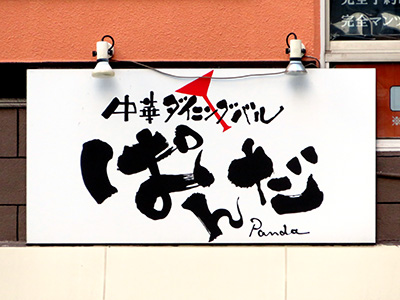 完全マンツ
中華ダイニングバル
ぱんだ
Panda